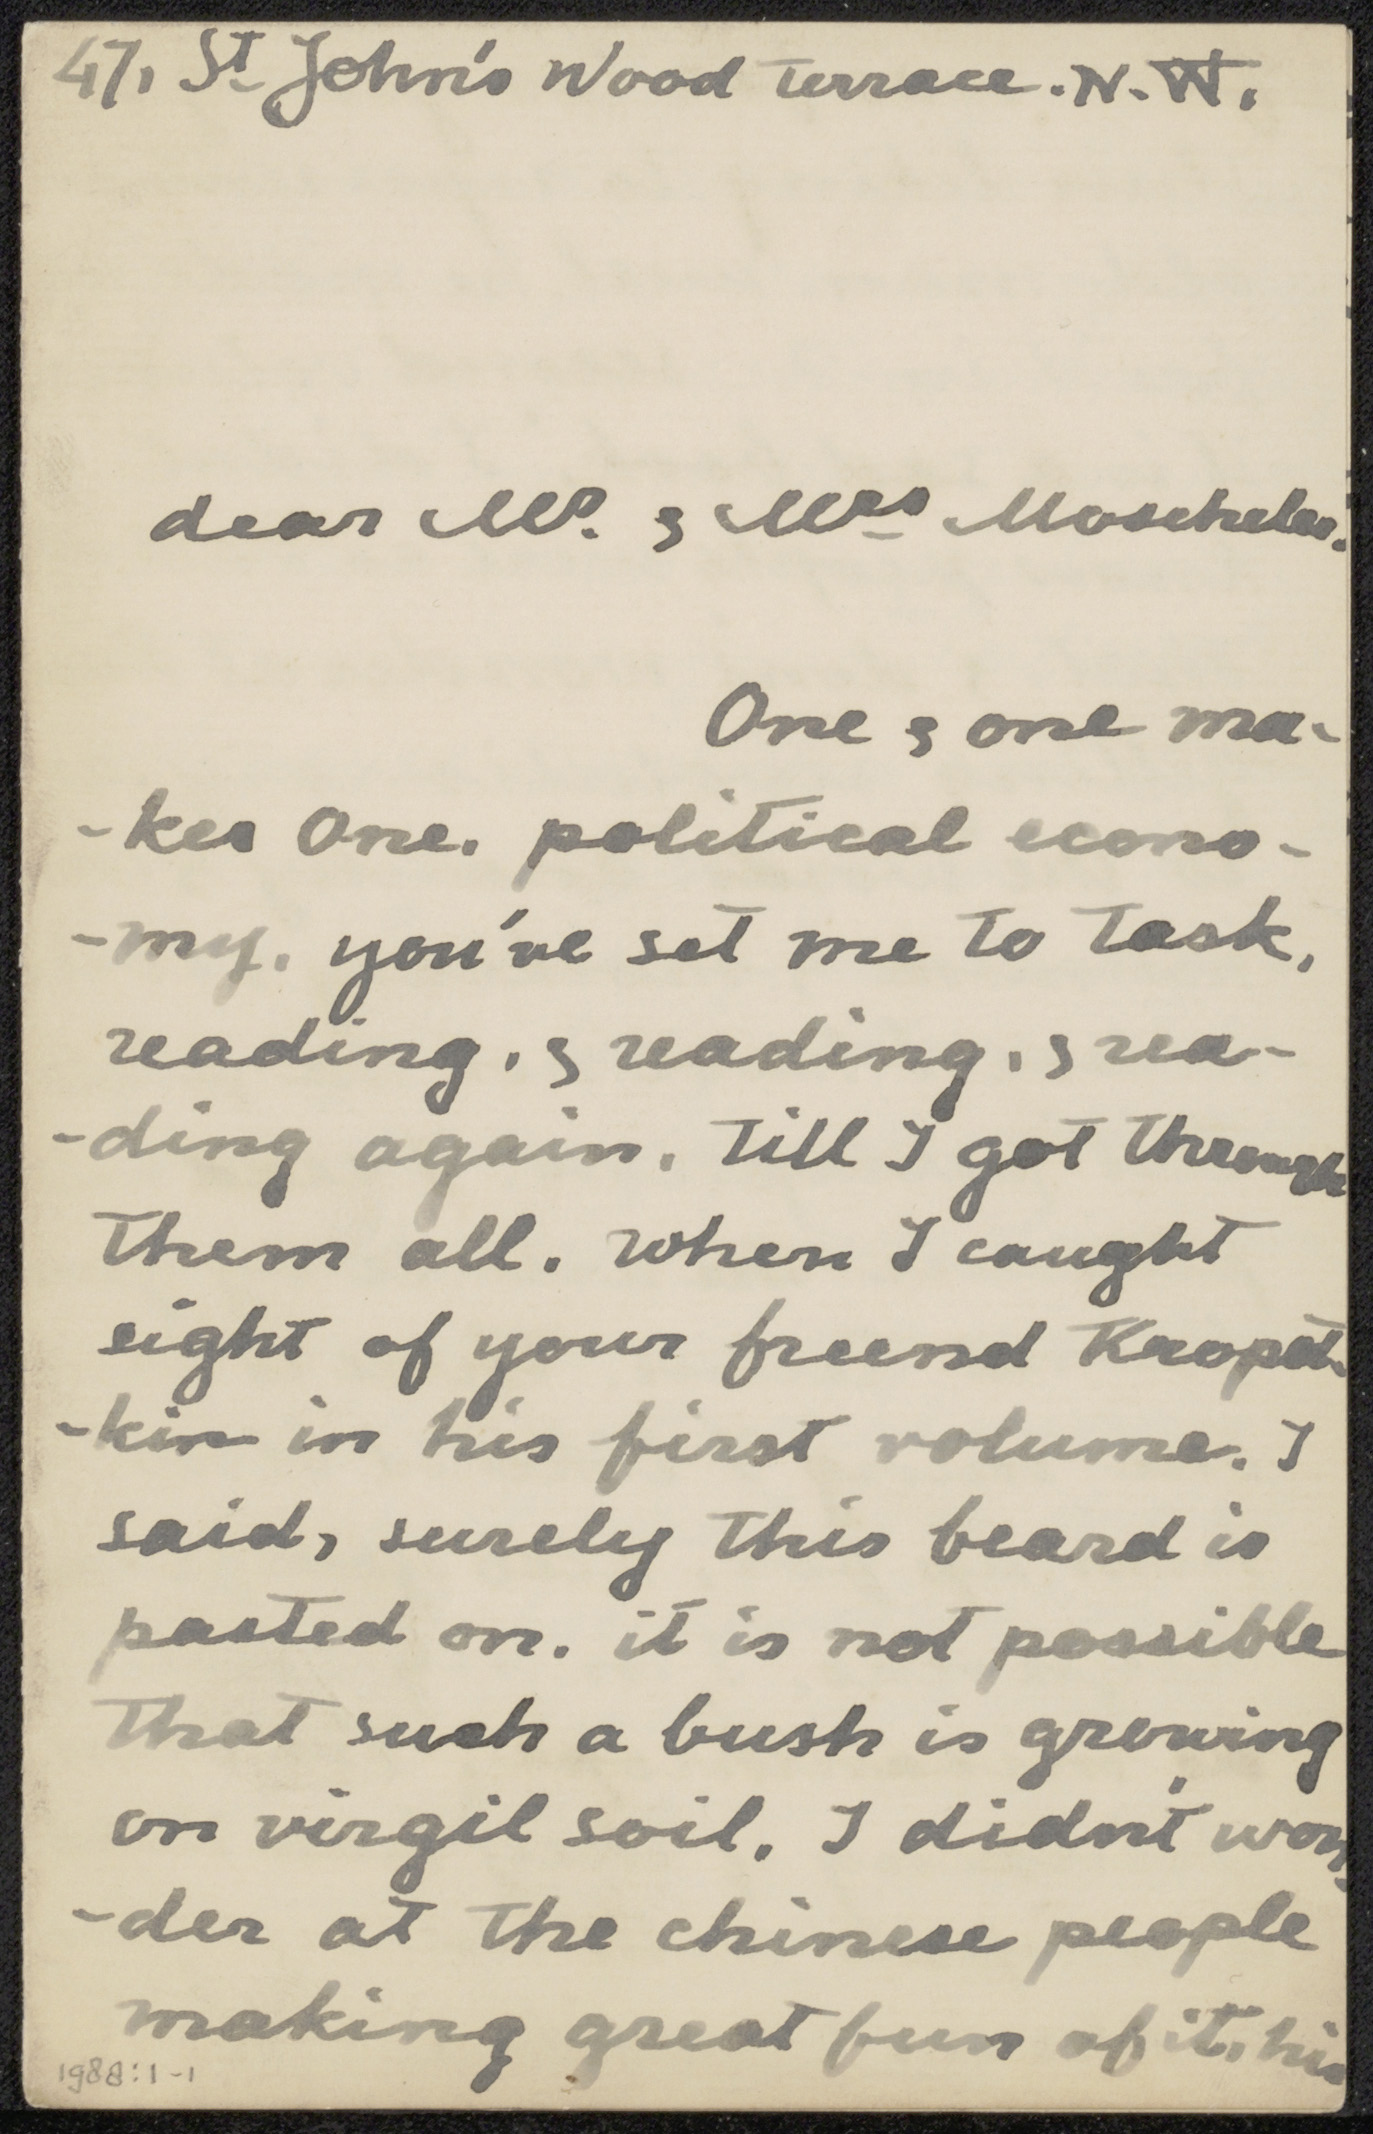 47, St John's Wood Terrace. N. W.
dear Mr. & Mrs Moscheles.
One & one ma-
-kes One. political econo-
-my. you've set me to task,
reading, & reading, & rea-
-ding again. till I got through
them all. when I caught
sight of your freend Kropot-
-kin in his first volume. I
said, surely this beard is
pasted on. it is not possible
that such a bush is growing
on virgil soil. I didn't won-
-der at the chinese people
making great fun of it. his
1988:1-1